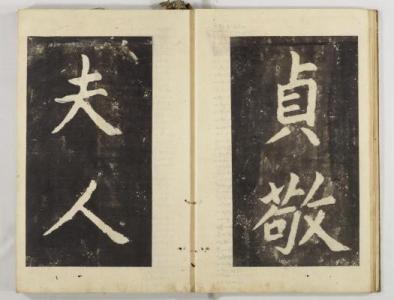 貞敬
夫人